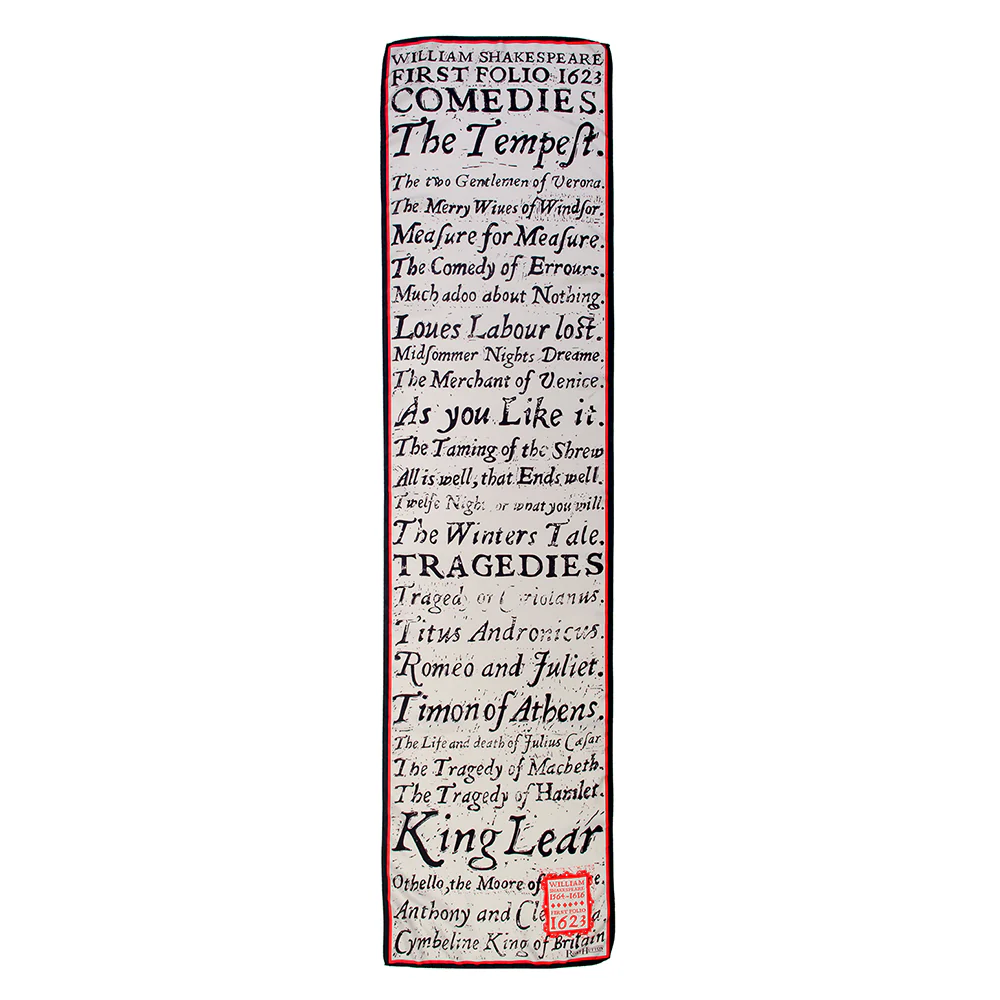 WILLIAM SHAKESPEARE
FIRST FOLIO 1623
COMEDIES.
The Tempeſt.
The two Gentlemen of Verona.
The Merry Wiues of Windſor.
Meaſure for Meaſure.
The Comedy of Errours.
Much adoo about Nothing.
Loues Labour loſt.
Midſommer Nights Dreame.
The Merchant of Venice.
As you Like it.
The Taming of the Shrew
All is well, that Ends well.
Twelfe Night or what you will.
The Winters Tale.
TRAGEDIES
Tragedy of Coriolanus.
Titus Andronicus.
Romeo and Juliet.
Timon of Athens.
The Life and death of Julius Cæſar
The Tragedy of Macbeth.
The Tragedy of Hamlet.
King Lear
Othello, the Moore of
Anthony and
Cymbeline King of Britain
WILLIAM
SHAKESPEARE
1564–1616
FIRST FOLIO
1623